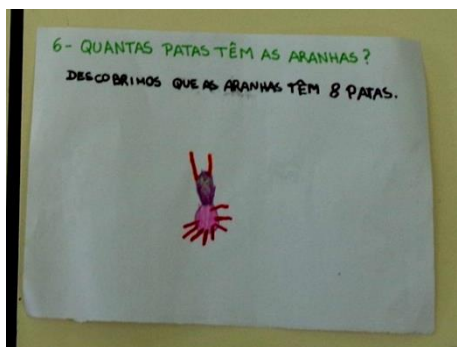 6- QUANTAS PATAS TÊM AS ARANHAS?
DESCOBRIMOS QUE AS ARANHAS TÊM 8 PATAS.